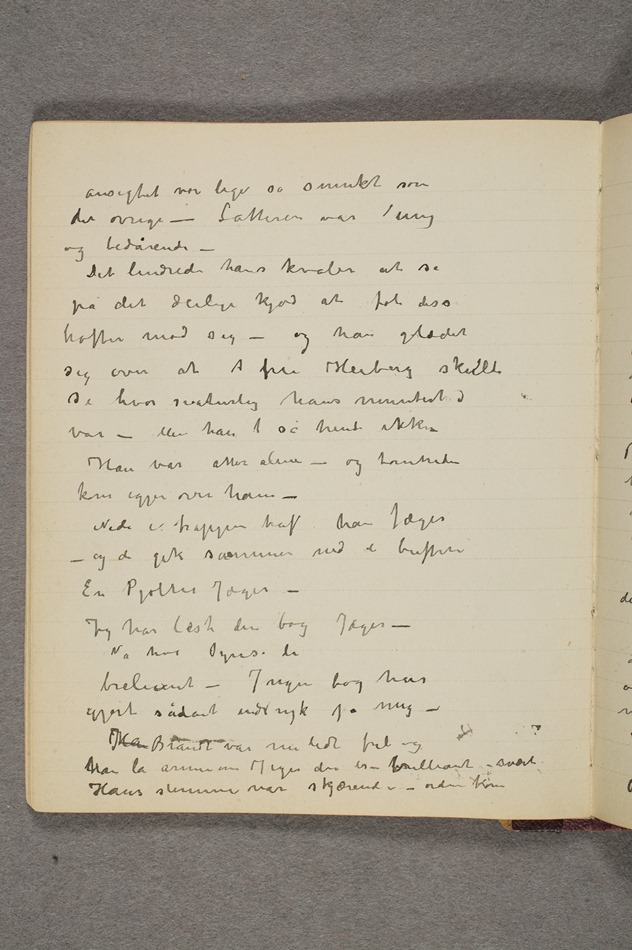 ansigtet var lige så smukt som
det øvrige — Latteren var ung
og bedårende —
Det lindrede hans kvaler at se
på det deilige kjød at føle dess
hofter mod sig — og han glædet
sig over at fru Heiberg skulde
se hvor naturlig hans
var — Men han så hende ikke
Han var atter alene — og tomheden
kom igjen over ham —
Nede i trappen traf han Jæger
— og de gik sammen ned i buffeen
En Pjolter Jæger —
Jeg har læst din bog Jæger —
Nå hva synes du
brilliant — Ingen bog har
gjort sådant indtryk på mig —
Brandt var nu lidt fuld og
han la armen om Jæger den er brilliant – svært
Hans stemme var skjærende –